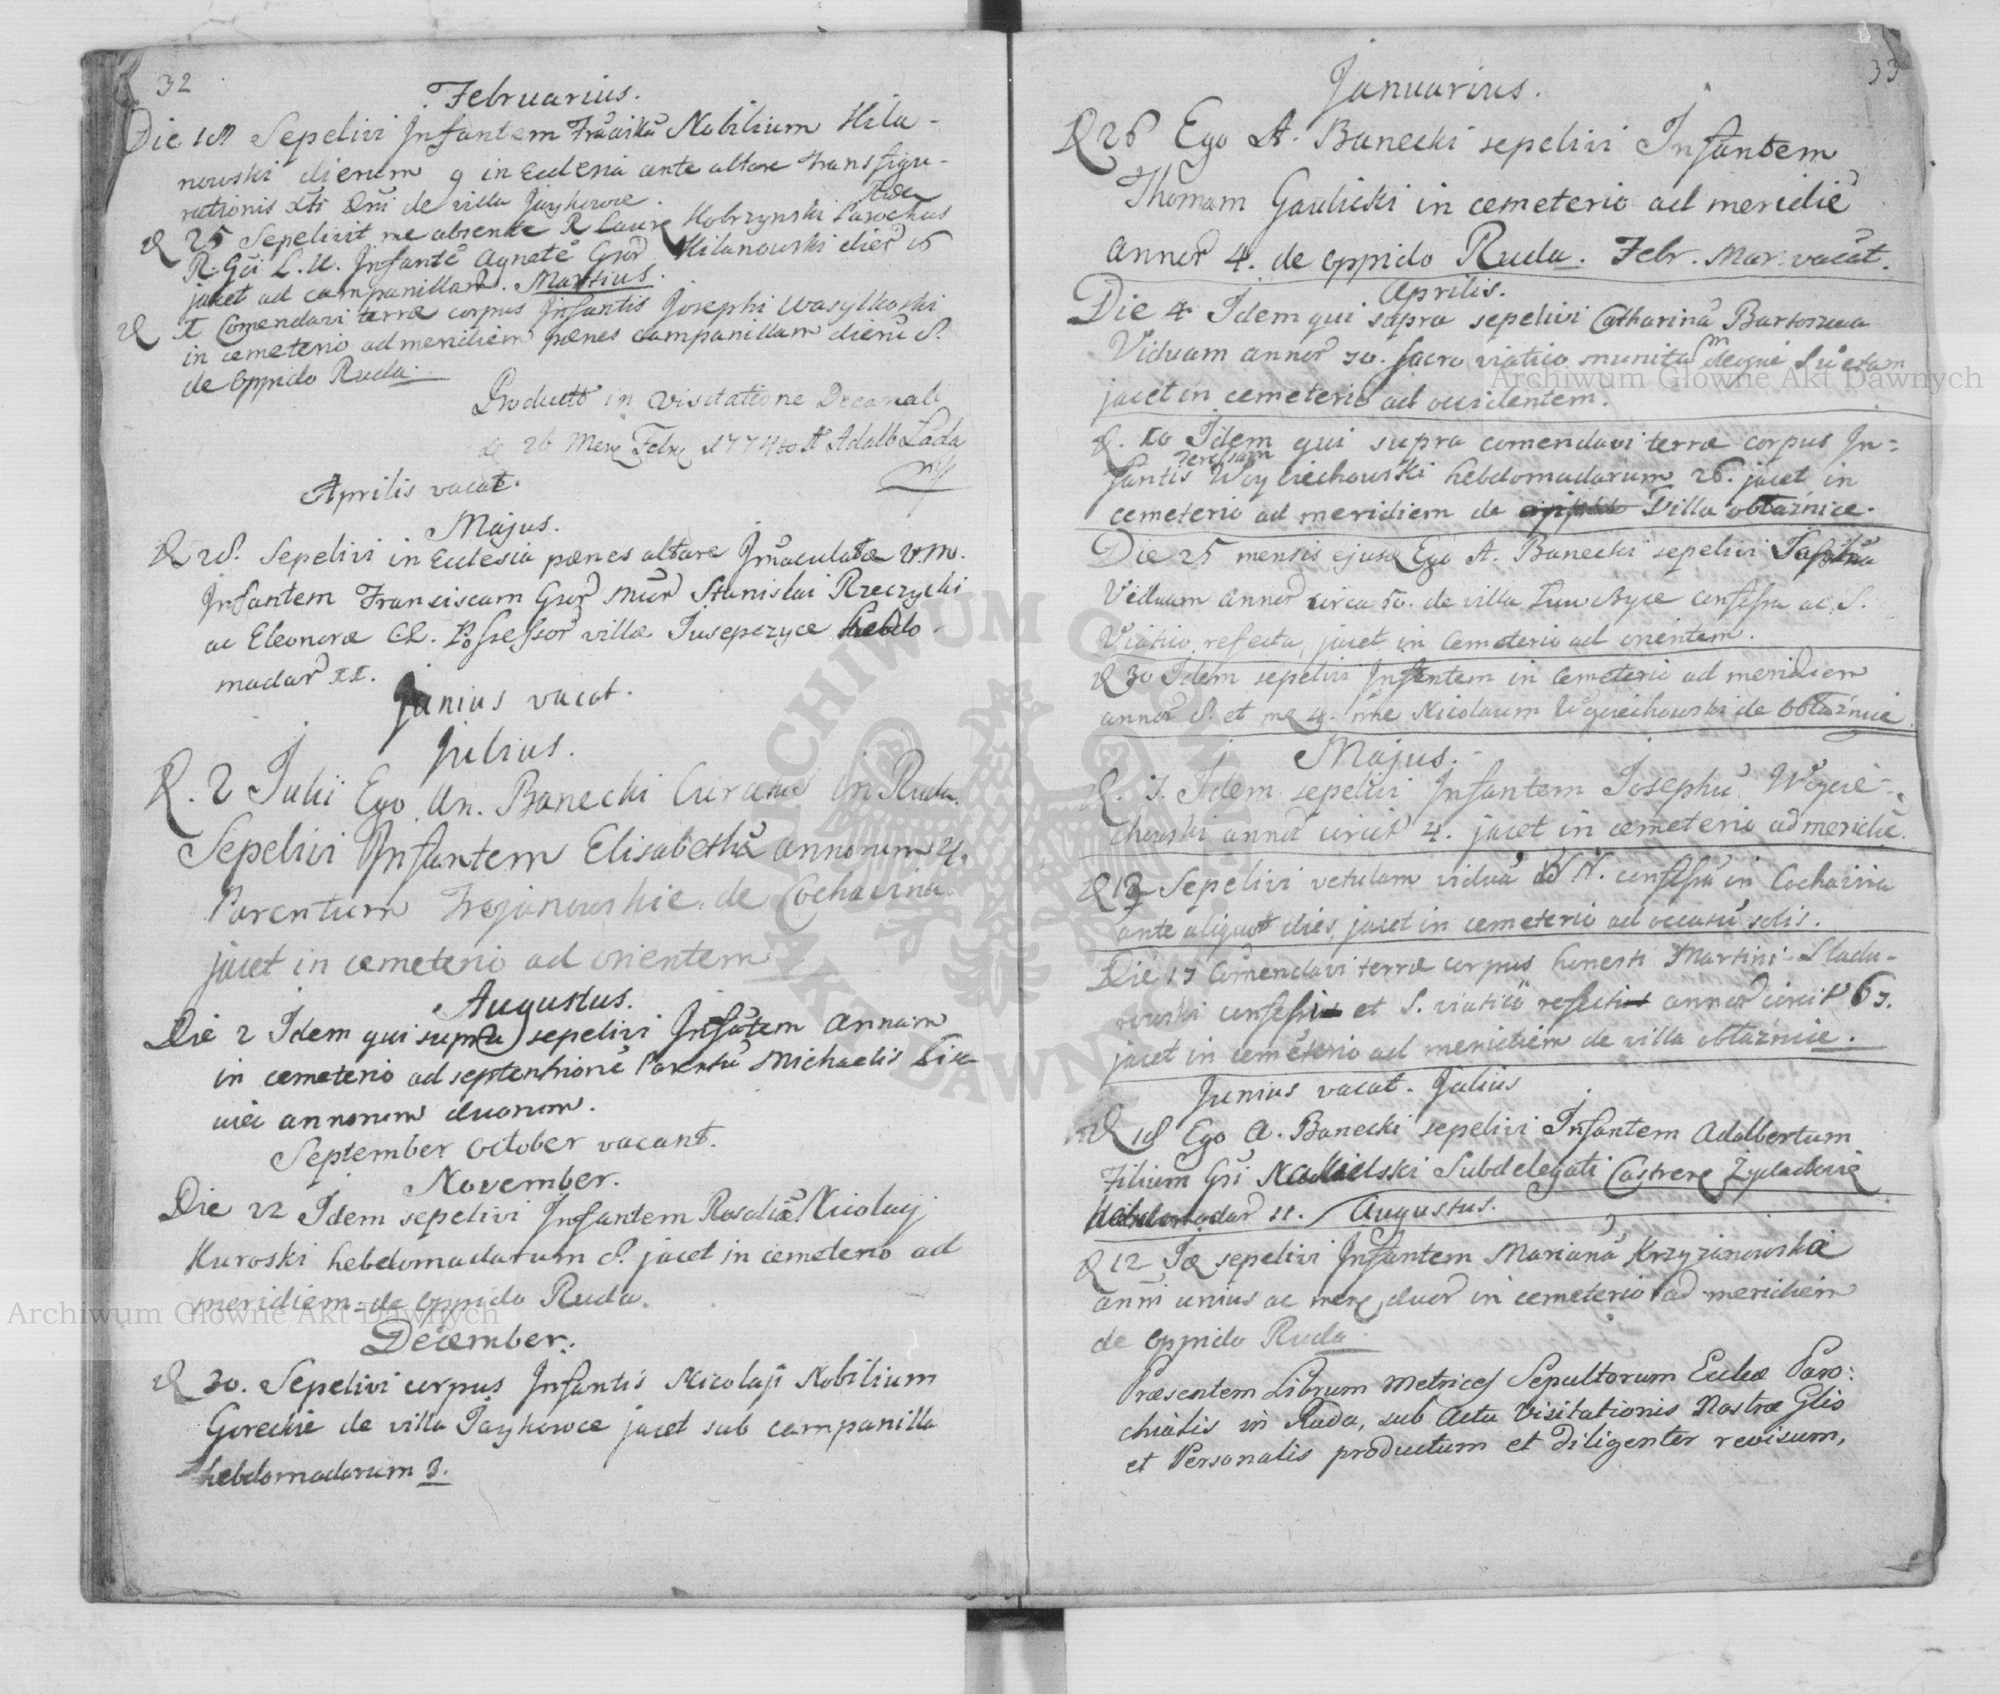 32
Februarius.
Die 18 Sepelivi Infantem Nobilium Hila-
nowski dierum 9 in Ecclesia ante altare transfigu-
rationis Xti Dni de villa Jaykowce.
D 25 Sepelivit me absente R Laur Kobrzynski Parochus
R. Gri L. U. Infantē Agnetē Gnor Hilanowski dier 16
jacet ad campanillam. Martius.
D I Comendavi terræ corpus Infantis Josephi Wasylkoski
in cemeterio ad meridiem pænes campanillam dierū 8.
de Oppido Ruda.
Productū in Visitatione Decanali
de 26 Mens Febr Adalb Lada
mp
Aprilis vacat.
Majus.
D 28. Sepelivi in Ecclesia pænes altare Immaculatæ V. M.
Infantem Franciscam Gnor Stanislai Rzeczycki
ac Eleonoræ CC. Possessor villæ Jusepczyce hebdo-
madar II.
Junius vacat.
Julius.
D. 2 Julii Ego An. Banecki Curatus in Ruda
Sepelivi Infantem Elisabethā annorum 4.
Parentum Trojanowskie de Cochavina
jacet in cemeterio ad orientem
Augustus.
Die 2 Idem qui supra sepelivi Infātem Annam
in cemeterio ad septentrionē Parentū Michaelis Lisie-
annorum duorum.
September October vacant.
November.
Die 22 Idem sepelivi Infantem Rosaliā Nicolaij
Kuroski hebdomadarum 8. jacet in cemeterio ad
meridiem de Oppido Ruda.
December.
D 30. Sepelivi corpus Infantis Nicolaji Nobilium
Goreckie de villa Jaykowce jacet sub campanilla
hebdomadarum 3.
33
Januarius.
D 26 Ego A. Banecki sepelivi Infantem
Thomam Gawlicki in cemeterio ad meridiē
annor 4. de Oppido Ruda. Febr. Mar: vacāt.
Aprilis.
Die 4 Idem qui supra sepelivi Catharinā
Viduam annor 70. sacro viatico munitam
jacet in cemeterio ad occidentem.
D. 10 Idem qui supra comendavi terræ corpus In-
fantis Teressam Woyciechowski hebdomadarum 26. jacet in
cemeterio ad meridiem de Villa obłaźnice.
Die 25 mensis ejusd Ego A. Banecki sepelivi
Viduam annor circa 50. de villa confessa ac S.
Viatico refecta, jacet in Cemeterio ad orientem.
D 30 Idem sepelivi Infantem in Cemeterio ad meridiem
annor 8. et 4. Nicolaum Wyciechowski de obłaźnice
Majus.
D. 7. Idem sepelivi Infantem Josephū Woycie-
chowski annor circit 4. jacet in cemeterio ad meridiē.
D 12 Sepelivi vetulam viduā N. confessā in Cochavina
ante aliquot dies, jacet in cemeterio ad occasū solis.
Die 17 Comendavi terræ corpus honesti Martini Sladu-
rowski et S. viatico annor circit 67.
jacet in cemeterio ad meridiem de villa obłaznice.
Junius vacat. Julius
D 18 Ego A. Banecki sepelivi Infantem Adalbertum
Filium Gri Subdelegati Castrens Zydacovien
hebdomadar 11. Augustus.
D 12 Id sepelivi Infantem Marianā Krzyzanowska
anni unius ac mens duor in cemeterio ad meridiem
de Oppido Ruda.
Præsentem Librum Metrices Sepultorum Ecclæ Paro:
chialis in Ruda, sub Actu Visitationis Nostræ Glis
et Personalis productum et diligenter revisum,
Archiwum Główne Akt Dawnych
Archiwum Główne Akt Dawnych
ARCHIWUM GŁÓWNE AKT DAWNYCH